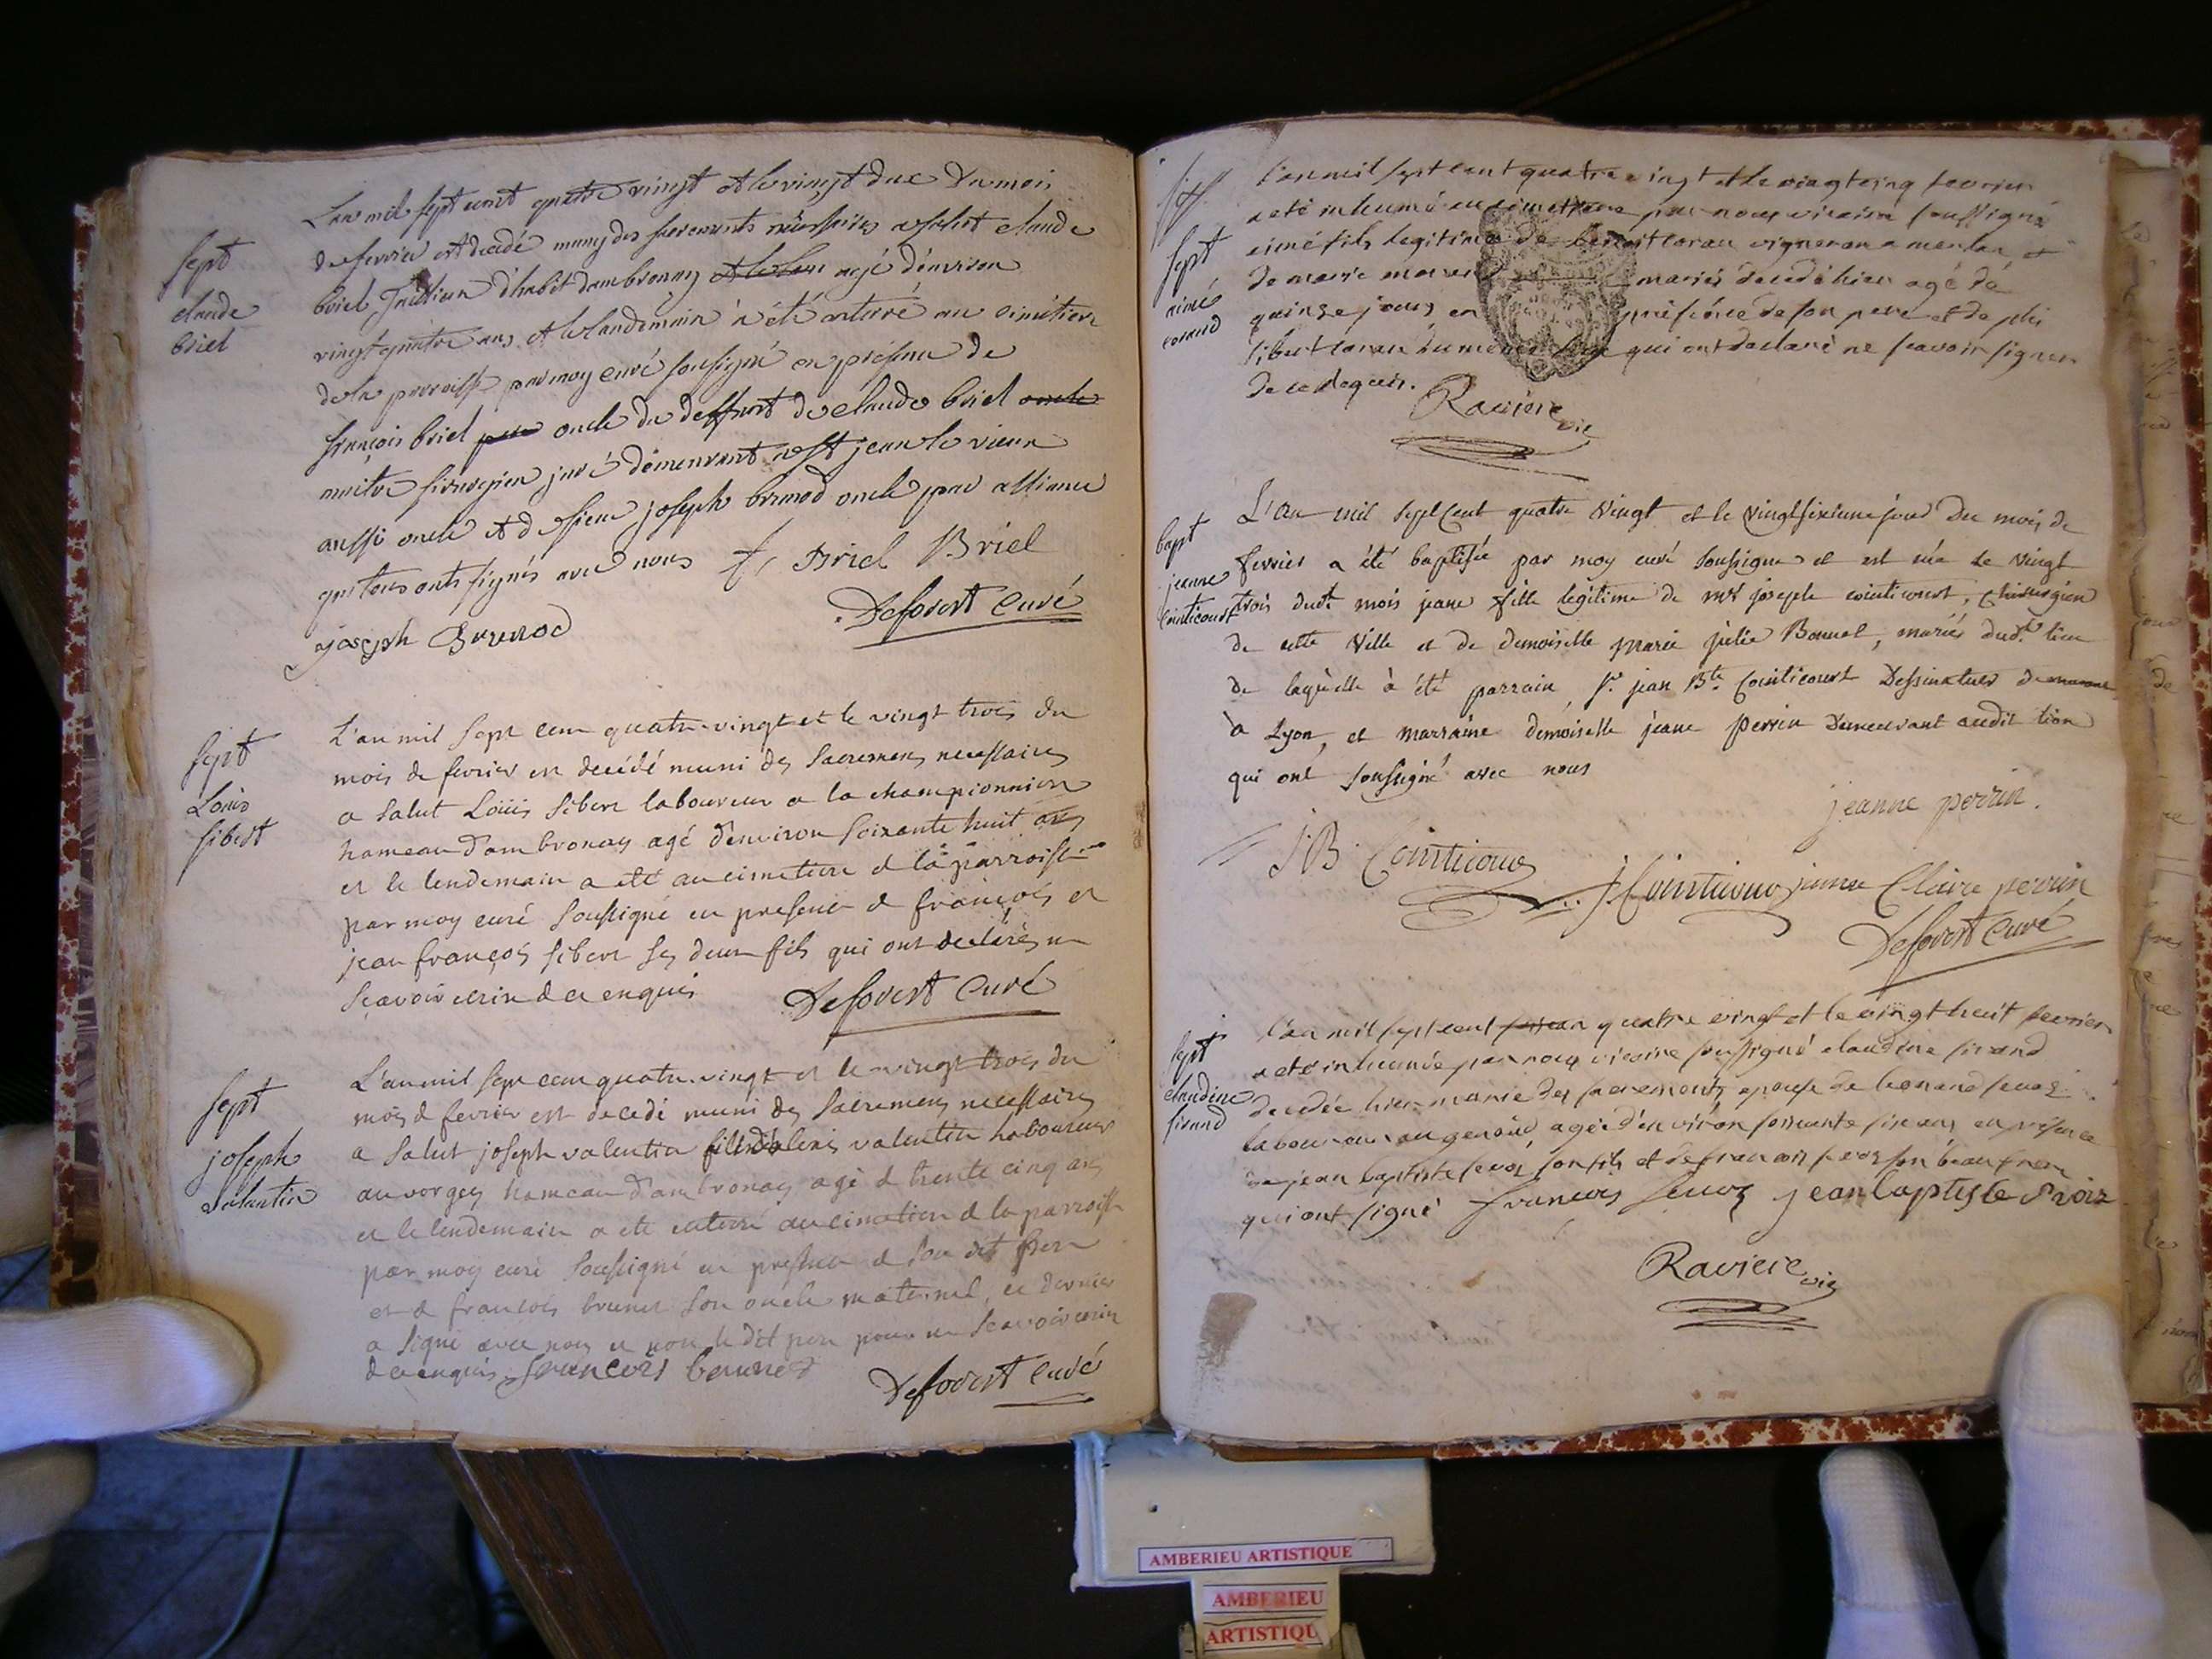 sept
claude
briel
L'an mil sept cent quatre vingt et le vingt due du mois
de fevrier est decedé muny des sacrements nécessaires a salut claude
briel tailleur d'habit d'ambronay agé d'environ
vingt quatre ans et le landemain à été enterré au cimetiere
de la parroisse par moy curé soussigné en présence de
françois briel oncle du deffunt de claude briel
maitre sirurgien juré demeurant a st jean le vieux
aussi oncle et de sieur joseph brunod oncle par alliance
qui tous onts signés avec nous f. Briel Briel
joseph Brunod Deforest Curé
sept
Louis
sibert
L'an mil sept cent quatre-vingt et le vingt trois du
mois de fevrier est decédé muni des sacremens necessaires
a salut Louis sibert laboureur a la championniere
hameau d'ambronay agé d'environ soixante huit ans
et le lendemain a eté au cimetiere de la parroisse
par moy curé soussigné en presence de françois et
jean françois sibert ses deux fils qui ont declarés ne
sçavoir ecrire de ce enquis Deforest Curé
sept
joseph
valentin
L'an mil sept cent quatre-vingt et le vingt trois du
mois de fevrier est decedé muni des sacremens necessaires
a salut joseph valentin fils valentin laboureur
au vorgey hameau d'ambronay agé de trente cinq ans
et le lendemain a eté enterré au cimetiere de la parroisse
par moy curé soussigné en presence de son dit pere
et de françois brunet son oncle maternel, ce dernier
a signé avec nous et non le dit pere pour ne sçavoir ecrire
de ce enquis françois brunet Deforest Curé
sept
aimé
corand
l'an mil sept cent quatre vingt et le vingt cinq fevrier
a eté inhumé au cimettiere par nous vicaire soussigné
aimé fils legitime de benoit coran vigneron a merlan et
de marie mariés decedé hier agé de
quinze jours en présence de son pere et de phi
libert coran qui ont declaré ne sçavoir signer
de ce requis.
Raviere vic
bapt
jeanne
Cointicourt
L'an mil sept cent quatre vingt et le vingt sixieme jour du mois de
fevrier a été baptisée par moy curé soussigné et est née le vingt
trois dudt mois jeane fille legitime de mre joseph cointicourt, chirurgien
de cette ville et de demoiselle marie julie Bonnet, mariés dudt lieu
de laquelle à été parrain, sr jean Bte Cointicourt Dessinateur
à Lyon, et marraine demoiselle jeane perrin demeurant audit lieu
qui ont soussigné avec nous
jeanne perrin.
J B Cointicour
J Cointicour Claire perrin
Deforest Curé
sept
claudine
sirand
l'an mil sept cent quatre vingt et le vingt huit fevrier
a eté inhumée par nous vicaire soussigné claudine sirand
decedée hier munie des sacrements epouse de
laboureur au genoud, agée d'environ soixante six ans en présence
de jean baptiste son fils et de françois son beau frere
qui ont signé françois jean baptiste
Raviere vic
AMBERIEU ARTISTIQUE
AMBERIEU
ARTISTIQU